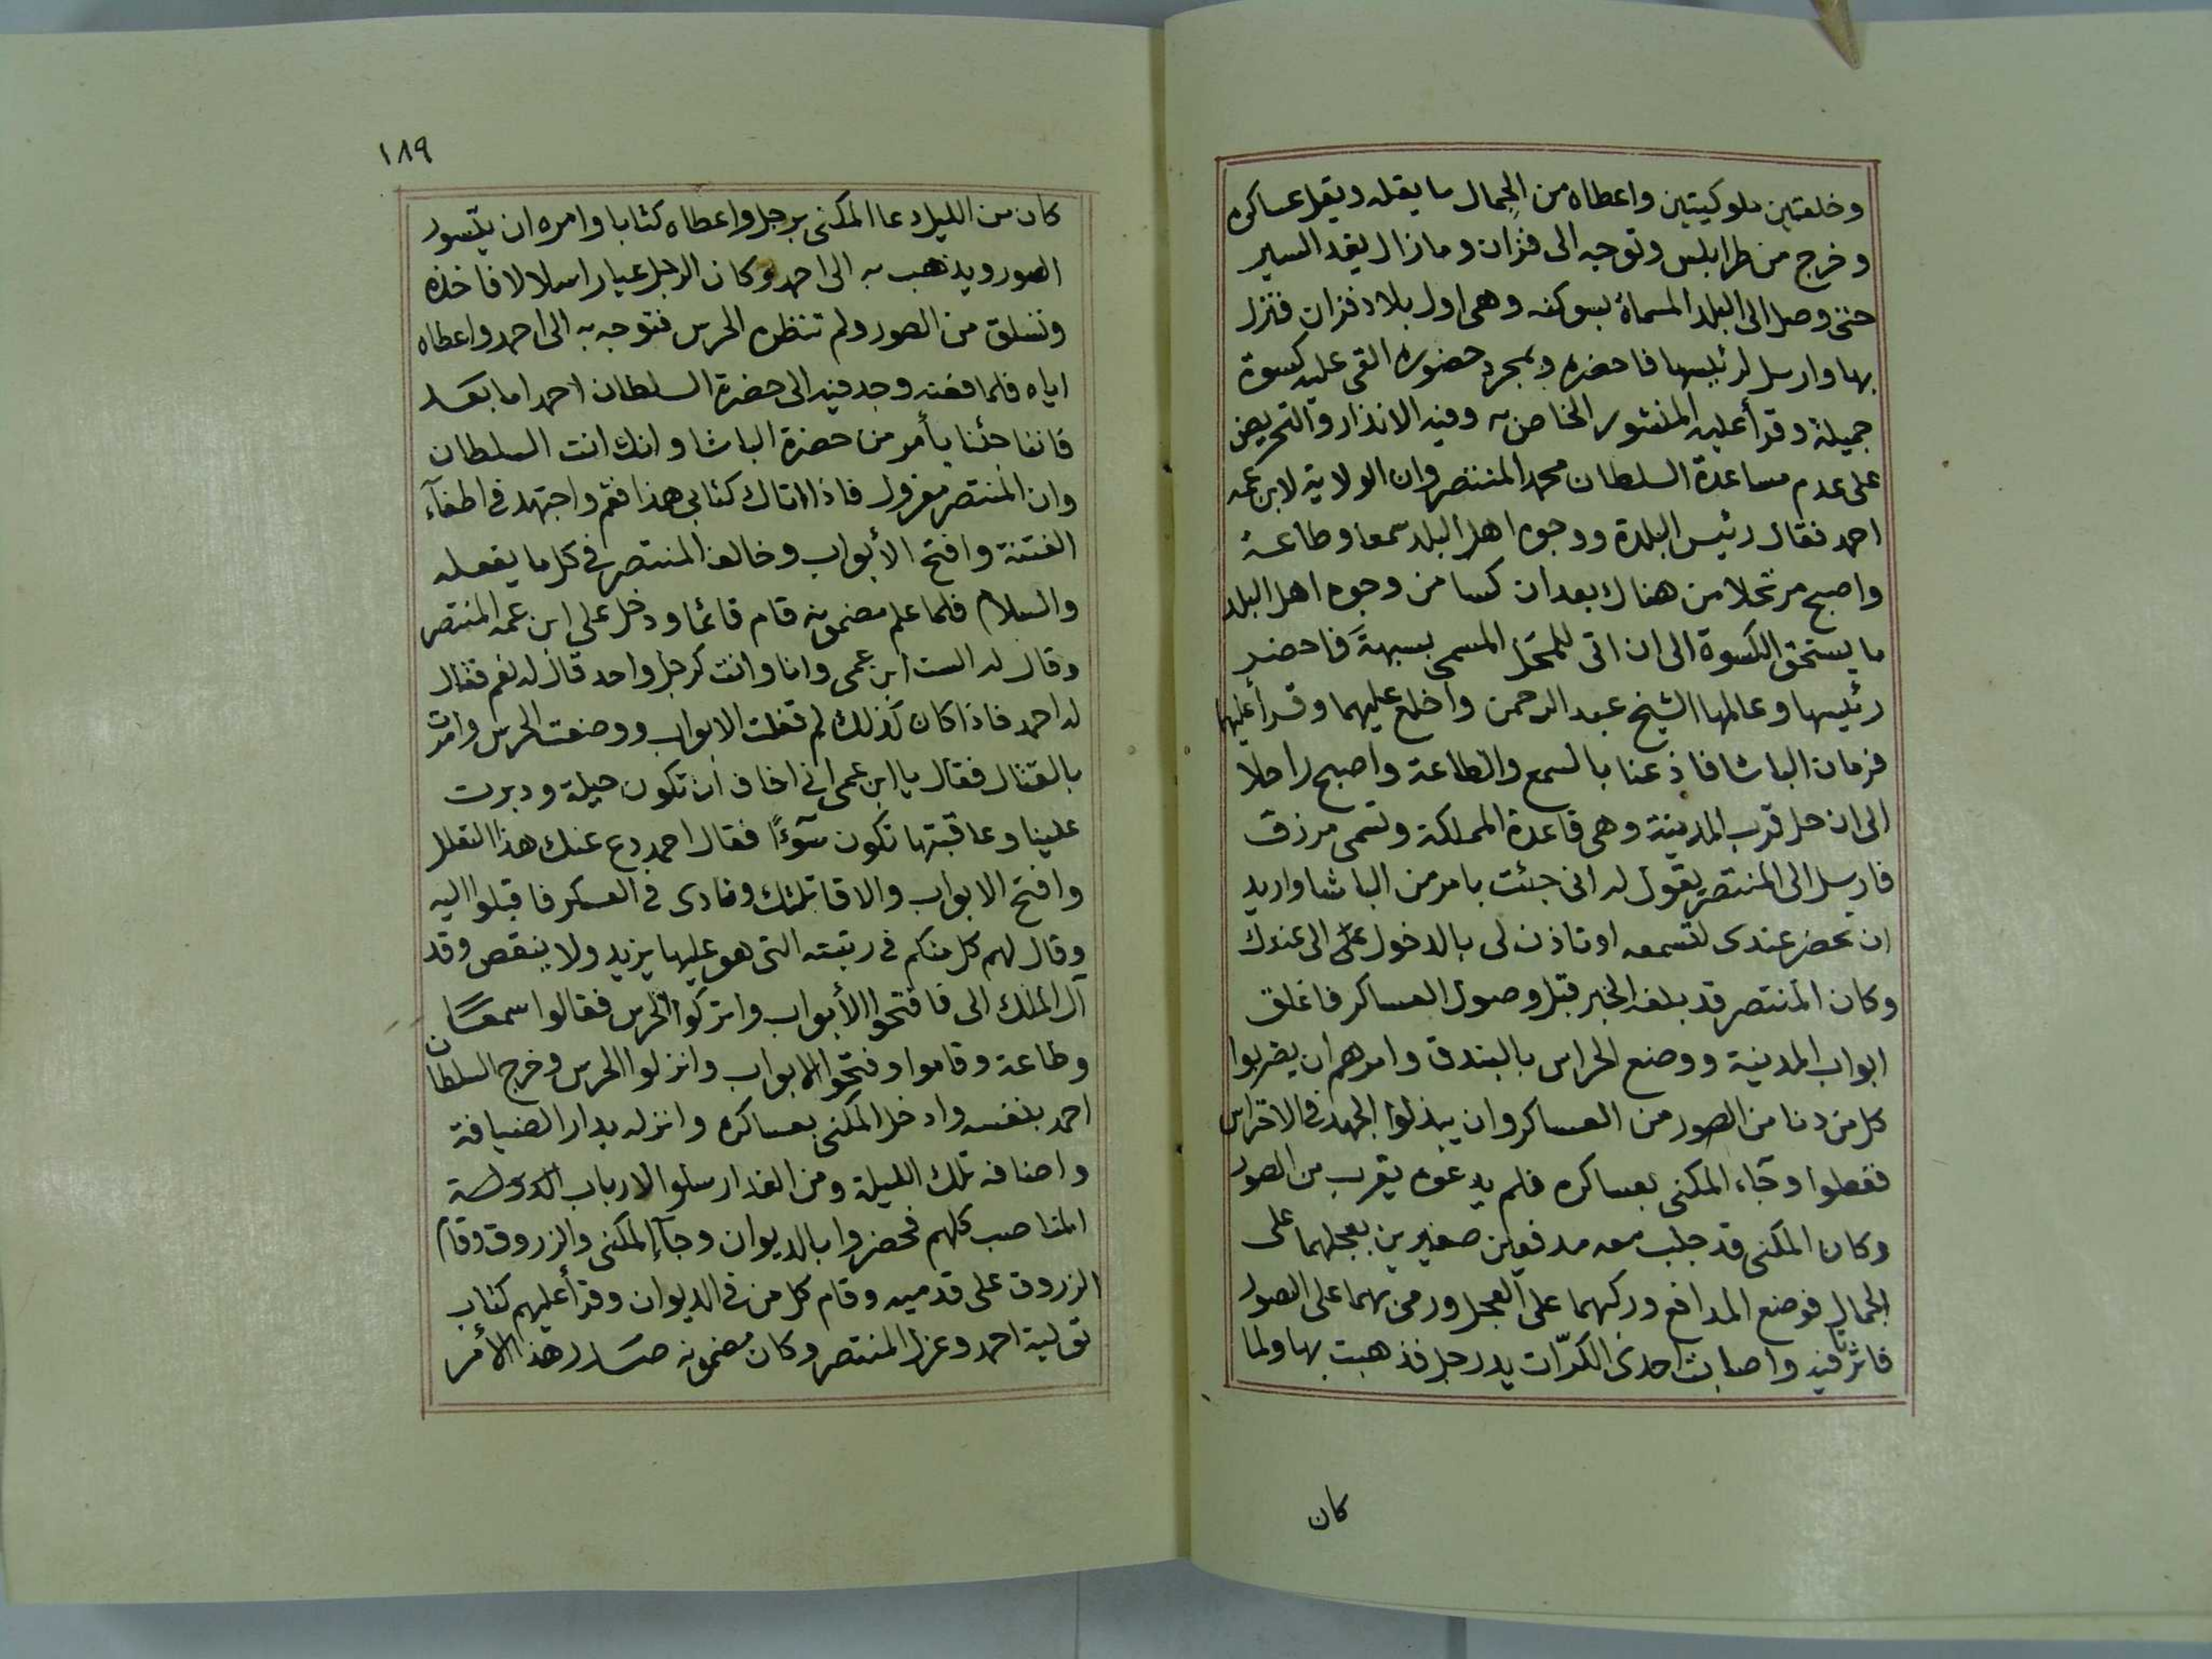 وخلعتين ملوكيتين واعطاه من الجمال ما يقله ويقل عساكره
وخرج من طرابلس وتوجه الى فزان وما زال يقد السير
حتى وصل الى البلد المسماة بسوكنه وهى اول بلاد فزان فنزل
بها وارسل لرئيسها فاحضره وبمجرد حضوره القى عليه كسوة
جميلة وقرأ عليه المنشور الخاص به وفيه الانذار والتحريض
على عدم مساعدة السلطان محمد المنتصر وان الولاية لابن عمه
احمد فقال رئيس البلدة ووجوه اهل البلد سمعا وطاعة
واصبح مرتحلا من هناك بعد ان كسا من وجوه اهل البلد
ما يستحق الكسوة الى ان اتى للمحل المسمى بسبهة فاحضر
رئيسها وعالمها الشيخ عبد الرحمن واخلع عليهما وقرأ عليهما
فرمان الباشا فاذعنا بالسمع والطاعة واصبح راحلا
الى ان حل قرب المدينة وهى قاعدة المملكة وتسمى مرزق
فارسل الى المنتصر يقول له انى جئت بامر من الباشا واريد
ان تحضر عندى لتسمعه او تاذن لى بالدخول حتى الى عندك
وكان المنتصر قد بلغه الخبر قبل وصول العساكر فاغلق
ابواب المدينة ووضع الحراس بالبندق وامرهم ان يضربوا
كل من دنا من الصور من العساكر وان يبذلوا الجهد فى الاحتراس
ففعلوا وجآء المكنى بعساكره فلم يدعوه يقرب من الصور
وكان المكنى قد جلب معه مدفعين صغيرين بعجلهما على
الجمال فوضع المدافع وركبهما على العجل ورمى بهما على الصور
فاثرتا فيه واصابت احدى الكرّات يد رجل فذهبت بها ولما
كان
١٨٩
كان من الليل دعا المكنى برجل واعطاه كتابا وامره ان يتسور
الصور ويذهب به الى احمد وكان الرجل عيارا سلالا فاخذه
وتسلق من الصور ولم تنظره الحرس فتوجه به الى احمد واعطاه
اياه فلما فضه وجد فيه الى حضرة السلطان احمد اما بعد
فاننا جئنا بأمر من حضرة الباشا وانك انت السلطان
وان المنتصر معزول فاذا اتاك كتابى هذا فقم واجتهد فى اطفآء
الفتنة وافتح الأبواب وخالف المنتصر فى كل ما يفعله
والسلام فلما علم مضمونه قام قائما ودخل على ابن عمه المنتصر
وقال له الست ابن عمى وانا وانت كرجل واحد قال له نعم فقال
له احمد فاذا كان كذلك لم قفلت الابواب ووضعت الحرس وامرت
بالقتال فقال يا ابن عمى انى اخاف ان تكون حيلة ودبرت
علينا وعاقبتها تكون سوءًا فقال احمد دع عنك هذا التعلل
وافتح الابواب والا قاتلتك ونادى فى العسكر فاقبلوا اليه
وقال لهم كل منكم فى رتبته التى هو عليها يزيد ولا ينقص وقد
آل الملك الى فافتحوا الأبواب واتركوا الحرس فقالوا سمعًا
وطاعة وقاموا وفتحوا الابواب وانزلوا الحرس وخرج السلطان
احمد بنفسه وادخل المكنى بعساكره وانزله بدار الضيافة
واضافه تلك الليلة ومن الغد ارسلوا لارباب الدولة
المناصب كلهم فحضروا بالديوان وجآء المكنى والزروق وقام
الزروق على قدميه وقام كل من فى الديوان وقرأ عليهم كتاب
تولية احمد وعزل المنتصر وكان مضمونه صدر هذا الأمر